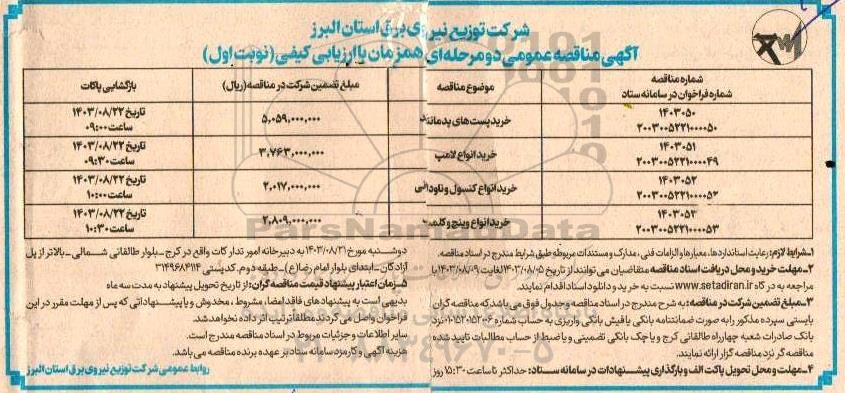 شرکت توزیع نیروی برق استان البرز
آگهی مناقصه عمومی دو مرحله‌ای همزمان با ارزیابی کیفی (نوبت اول)
شماره مناقصه
شماره فراخوان در سامانه ستاد
موضوع مناقصه
مبلغ تضمین شرکت در مناقصه (ریال)
بازگشایی پاکات
۱۴۰۳۰۵۰
۲۰۰۳۰۰۵۲۲۱۰۰۰۰۵۰
خرید پست‌های پدمانتد
۵,۰۵۹,۰۰۰,۰۰۰
تاریخ ۱۴۰۳/۰۸/۲۲
ساعت ۰۹:۰۰
۱۴۰۳۰۵۱
۲۰۰۳۰۰۵۲۲۱۰۰۰۰۴۹
خرید انواع لامپ
۳,۷۶۳,۰۰۰,۰۰۰
تاریخ ۱۴۰۳/۰۸/۲۲
ساعت ۰۹:۳۰
۱۴۰۳۰۵۲
۲۰۰۳۰۰۵۲۲۱۰۰۰۰۵۲
خرید انواع کنسول و ناودانی
۲,۰۱۷,۰۰۰,۰۰۰
تاریخ ۱۴۰۳/۰۸/۲۲
ساعت ۱۰:۰۰
۱۴۰۳۰۵۳
۲۰۰۳۰۰۵۲۲۱۰۰۰۰۵۳
خرید انواع وینچ و کلمپ
۲,۸۰۹,۰۰۰,۰۰۰
تاریخ ۱۴۰۳/۰۸/۲۲
ساعت ۱۰:۳۰
۱ـ شرایط لازم: رعایت استانداردها، معیارها و الزامات فنی، مدارک و مستندات مربوطه طبق شرایط مندرج در اسناد مناقصه.
۲ـ مهلت خرید و محل دریافت اسناد مناقصه: متقاضیان می‌توانند از تاریخ ۱۴۰۳/۰۸/۰۵ لغایت ۱۴۰۳/۰۸/۰۹ با
مراجعه به درگاه www.setadiran.ir نسبت به خرید و دانلود اسناد اقدام نمایند.
۳ـ مبلغ تضمین شرکت در مناقصه: به شرح مندرج در اسناد مناقصه و جدول فوق می‌باشد که مناقصه گران
بایستی سپرده مذکور را به صورت ضمانتنامه بانکی یا فیش بانکی واریزی به حساب شماره نزد
بانک صادرات شعبه چهارراه طالقانی کرج و یا چک بانکی تضمینی و یا ضبط از حساب مطالبات تایید شده
مناقصه گر نزد مناقصه گزار ارائه نمایند.
۴ـ مهلت و محل تحویل پاکت الف و بارگذاری پیشنهادات در سامانه ستاد: حداکثر تا ساعت ۱۵:۳۰ روز
دوشنبه مورخ ۱۴۰۳/۰۸/۲۱ به دبیرخانه امور تدارکات واقع در کرج ـ بلوار طالقانی شمالی ـ بالاتر از پل
آزادگان ـ ابتدای بلوار امام رضا(ع) ـ طبقه دوم. کدپستی ۳۱۴۹۶۸۴۱۱۴
۵ـ زمان اعتبار پیشنهاد قیمت مناقصه گران: از تاریخ تحویل پیشنهاد به مدت سه ماه
بدیهی است به پیشنهادهای فاقد امضا، مشروط، مخدوش و یا پیشنهاداتی که پس از مهلت مقرر در این
فراخوان واصل می‌گردند مطلقاً ترتیب اثر داده نخواهد شد.
سایر اطلاعات و جزئیات مربوط در اسناد مناقصه مندرج است.
هزینه آگهی و کارمزد سامانه ستاد بر عهده برنده مناقصه می‌باشد.
روابط عمومی شرکت توزیع نیروی برق استان البرز
ParsNamadData
۰۲۱-۸۸۳۴۹۶۷۰-۵